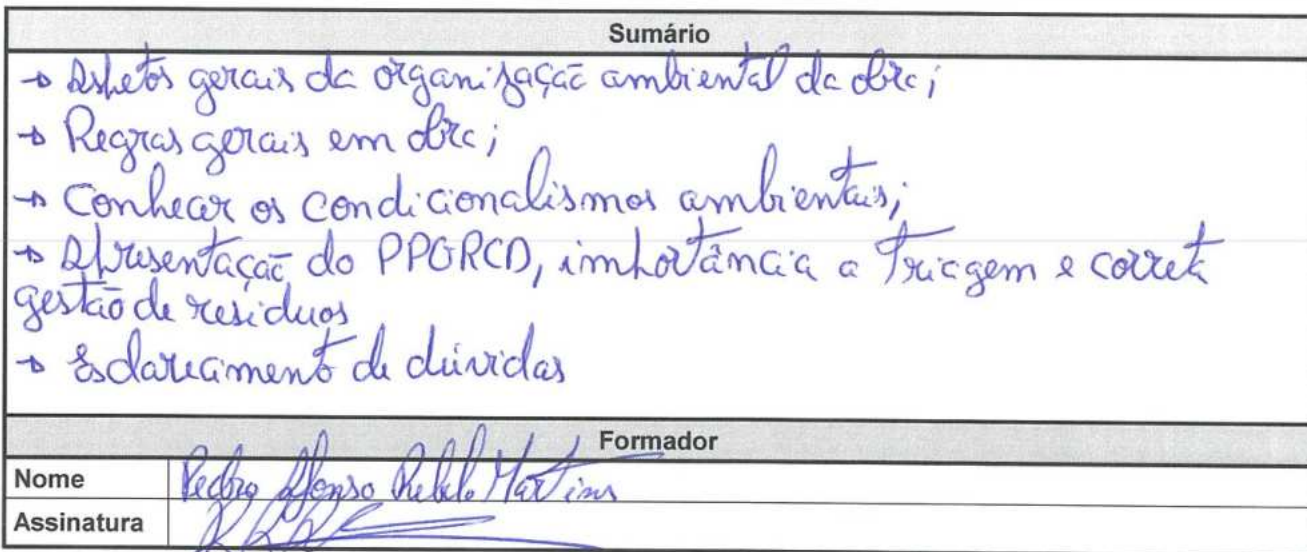 Sumário
→ Aspetos gerais da organização ambiental da obra;
→ Regras gerais em obra;
→ Conhecer os condicionalismos ambientais;
→ Apresentação do PPGRCD, importância a Triagem e correta
gestão de residuos
→ Esclarecimento de dúvidas
Formador
Nome Pedro Afonso Rebelo Martins
Assinatura